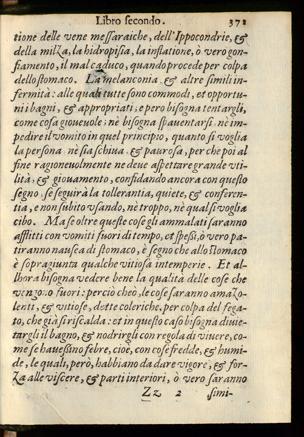 Libro secondo. 371
tione delle vene messaraiche, dell'Ippocondrie, &
della milza, la hidropisia, la inflatione, ò vero gon-
fiamento, il mal caduco, quando procede per colpa
dello stomaco. La melanconia & altre simili in-
fermità: alle quali tutte sono commodi, et opportu-
ni i bagni, & appropriati; e però bisogna tentargli,
come cosa gioueuole; nè bisogna spauentarsi, nè im-
pedire il vomito in quel principio, quanto si voglia
la persona nè sia schiua & paurosa, per che poi al
fine ragioneuolmente ne deue aspettare grande vti-
lità, & giouamento, confidando ancora con questo
segno, se seguirà la tollerantia, quiete, & conferen-
tia, e non subito vsando, nè troppo, nè qual si voglia
cibo. Ma se oltre queste cose gli ammalati saranno
afflitti con vomiti fuori di tempo, et spessi, ò vero pa-
tiranno nausea di stomaco, è segno che allo stomaco
è sopragiunta qualche vitiosa intemperie. Et al-
lhora bisogna vedere bene la qualità delle cose che
vengono fuori: perciò che ò, le cose saranno amaro-
lenti, & vitiose, dette coleriche, per colpa del fega-
to, che già si riscalda: et in questo caso bisogna diuie-
targli il bagno, & nodrirgli con regola di viuere, co-
me se hauessino febre, cioè, con cose fredde, & humi-
de, le quali, però, habbiano da dare vigore, & for-
za alle viscere, & parti interiori, ò vero saranno
Zz 2 simi-